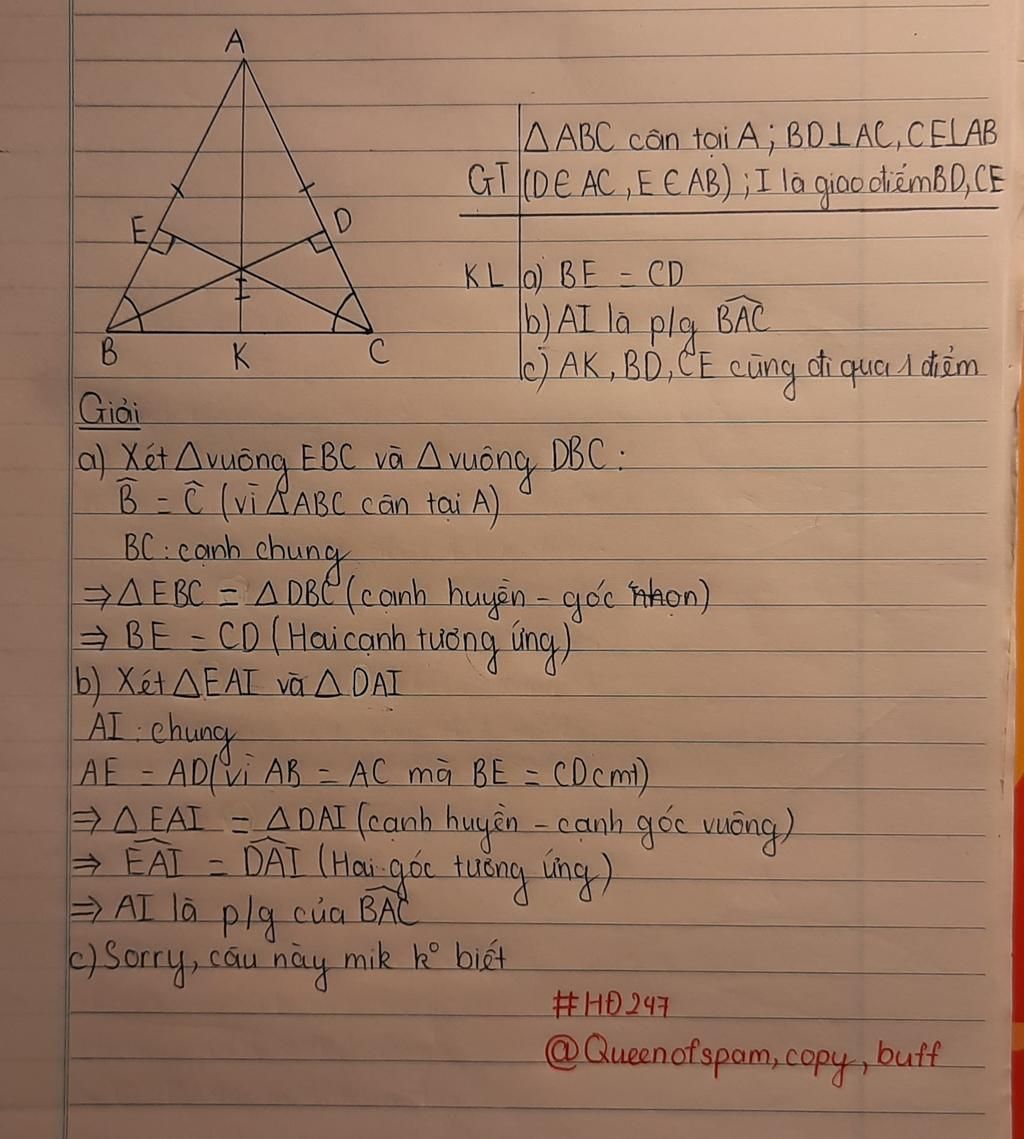 A
E
D
B
K
C
△ABC cân tại A; BD⊥AC, CE⊥AB
GT (D∈AC, E∈AB); I là giao điểm BD, CE
KL a) BE = CD
b) AI là p/g BAC
c) AK, BD, CE cùng đi qua 1 điểm
Giải
a) Xét △vuông EBC và △vuông DBC:
B̂ = Ĉ (vì △ABC cân tại A)
BC: cạnh chung
⇒ △EBC = △DBC (cạnh huyền - góc nhọn)
⇒ BE = CD (Hai cạnh tương ứng)
b) Xét △EAI và △DAI
AI: chung
AE = AD (vì AB = AC mà BE = CD cmt)
⇒ △EAI = △DAI (cạnh huyền - cạnh góc vuông)
⇒ EAI = DAI (Hai góc tương ứng)
⇒ AI là p/g của BAC
c) Sorry, câu này mik k° biết
#HĐ247
@Queenofspam, copy, buff